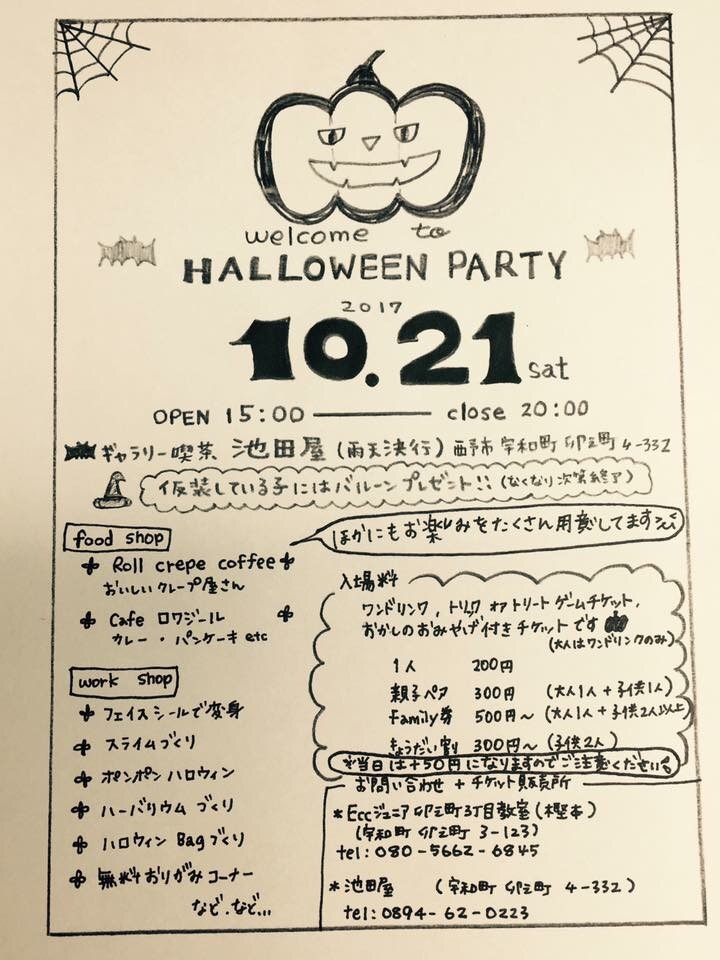 welcome to
HALLOWEEN PARTY
2017
10.21 sat
OPEN 15:00 ―――― close 20:00
ギャラリー喫茶 池田屋 (雨天決行) 西予市宇和町卯之町4-332
仮装している子にはバルーンプレゼント!! (なくなり次第終了)
ほかにもお楽しみをたくさん用意してます
food shop
Roll crepe coffee
おいしいクレープ屋さん
Cafe ロワジール
カレー・パンケーキ etc
work shop
フェイスシールで変身
スライムづくり
ポンポンハロウィン
ハーバリウムづくり
ハロウィンBagづくり
無料おりがみコーナー
など.など...
入場料
ワンドリンク, トリック オア トリートゲームチケット,
おかしのおみやげ付きチケットです
(大人はワンドリンクのみ)
1人 200円
親子ペア 300円 (大人1人+子供1人)
family券 500円～ (大人1人+子供2人以上)
きょうだい割 300円～ (子供2人)
※当日は+50円になりますのでご注意ください
お問い合わせ + チケット販売所
*Eccジュニア卯之町3丁目教室(樫本)
(宇和町卯之町3-123)
tel:080-5662-6845
*池田屋 (宇和町卯之町4-332)
tel:0894-62-0223